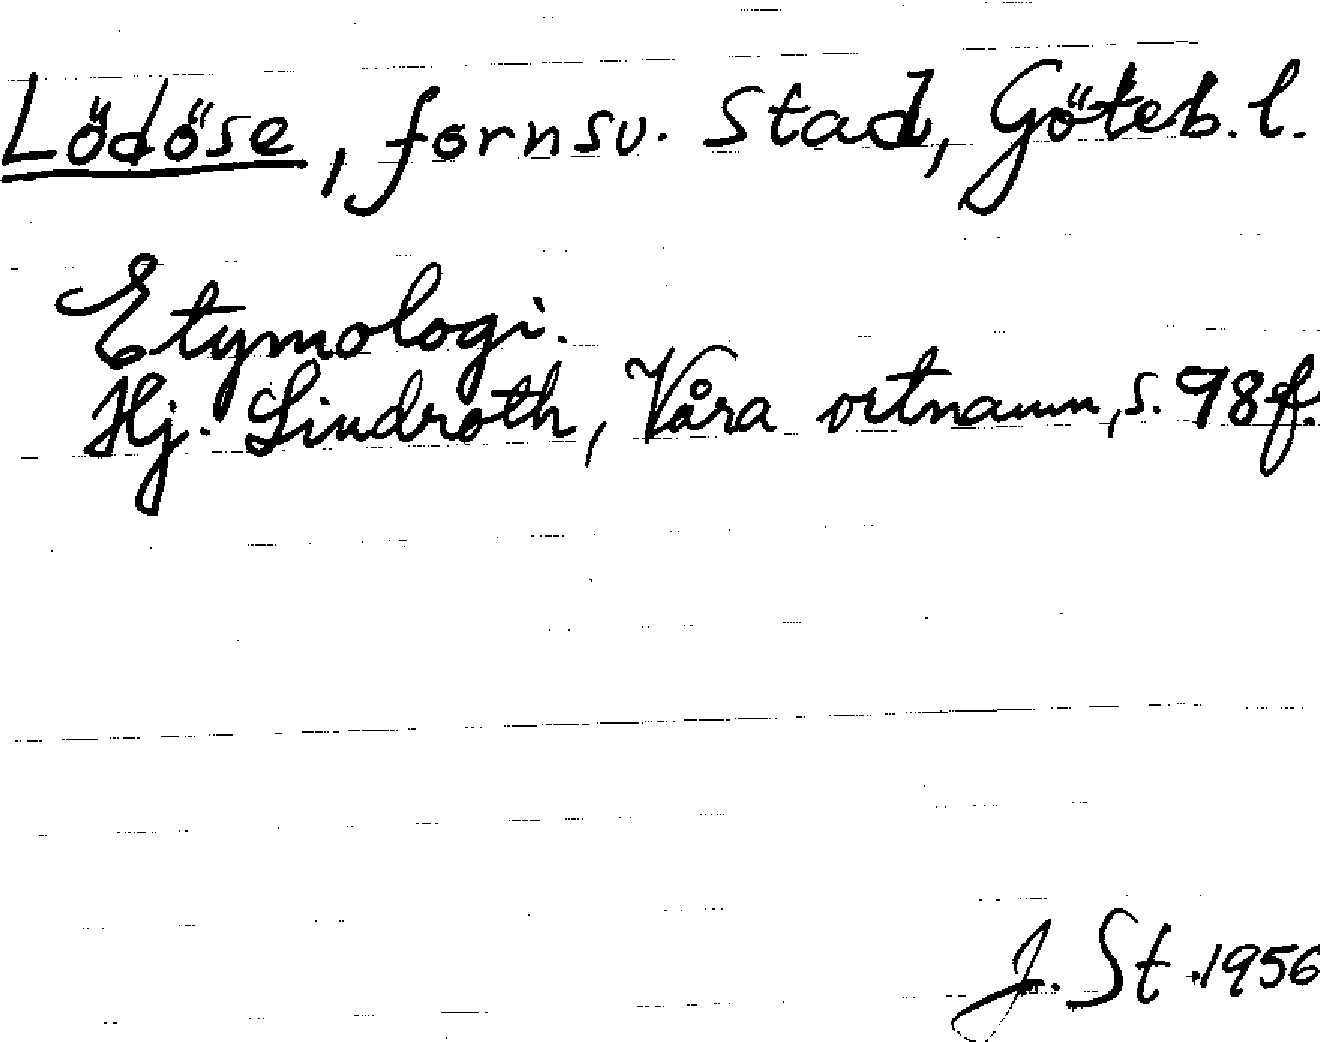 Lödöse, fornsv. stad, Göteb. l.
Etymologi.
Hj. Lindroth, Våra ortnamn, s. 98 f.
J. St. 1956